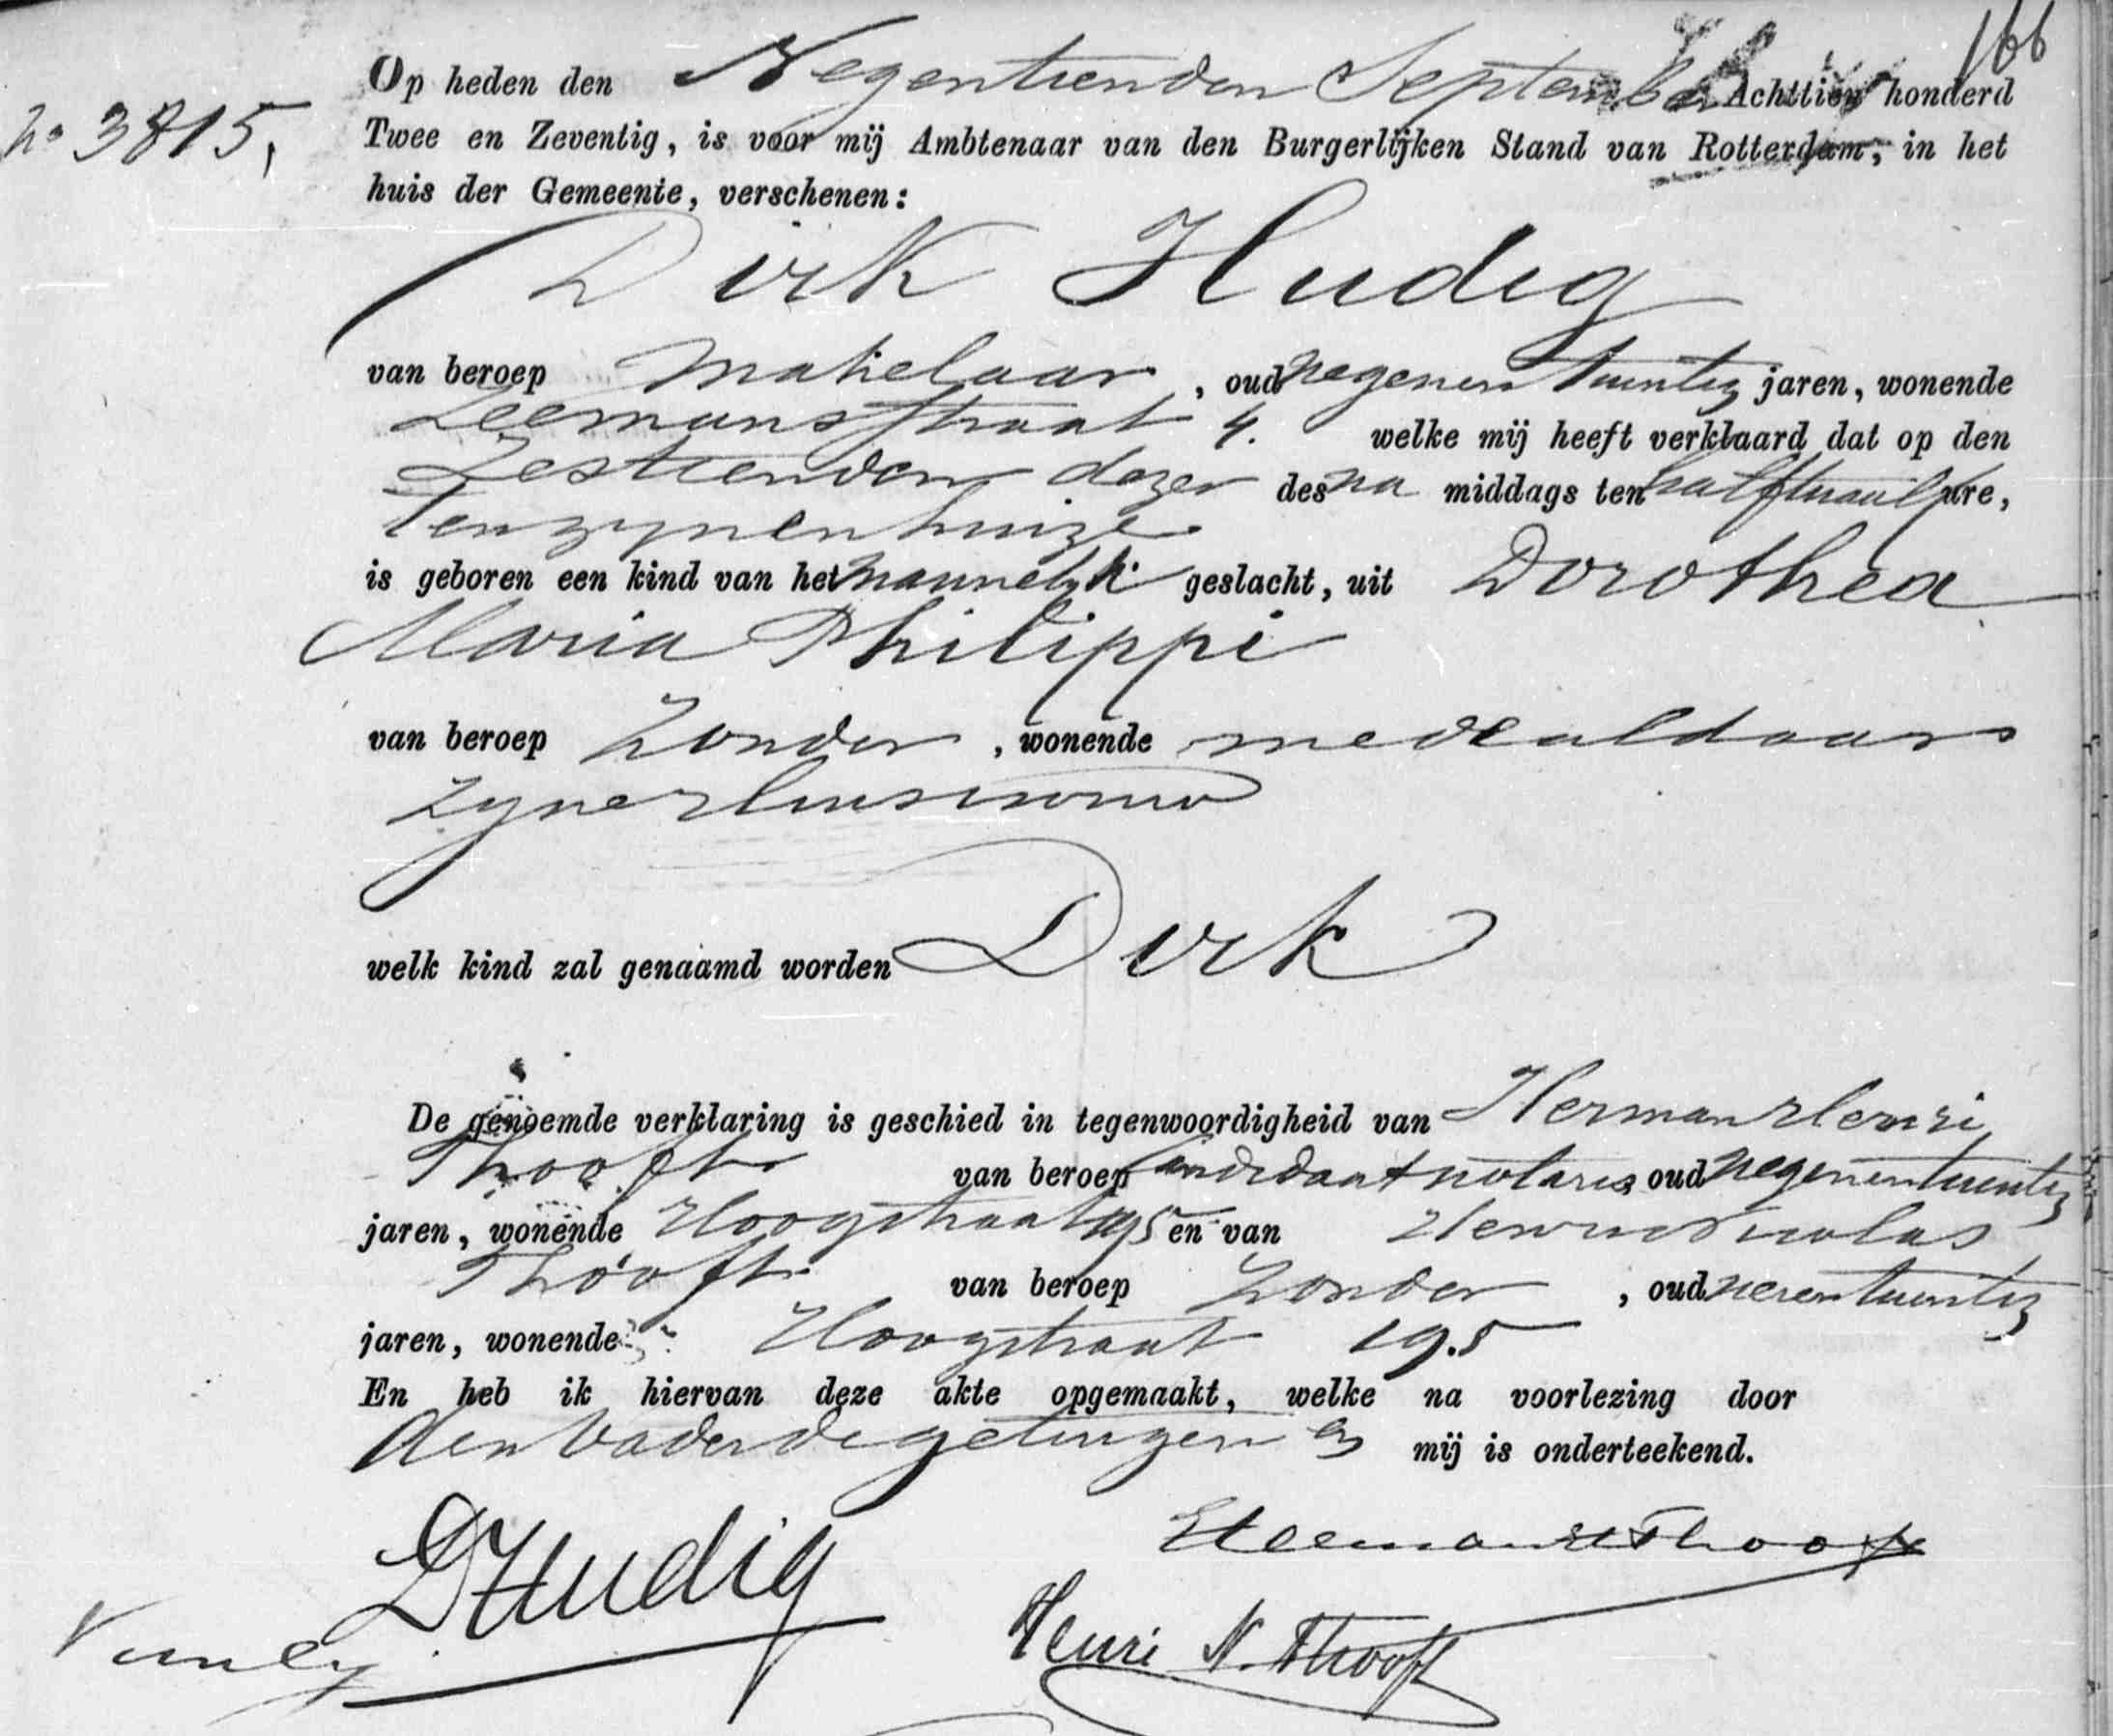 166
Op heden den Negentienden September Achttien honderd
No 3815, Twee en Zeventig, is voor mij Ambtenaar van den Burgerlijken Stand van Rotterdam, in het
huis der Gemeente, verschenen:
Dirk Hudig
van beroep Makelaar, oud negenentwintig jaren, wonende
Zeemansstraat 4. welke mij heeft verklaard dat op den
Zestienden dezer des na middags ten half twaalf ure,
Tenzynenhuize
is geboren een kind van het mannelyk geslacht, uit Dorothea
Maria Philippi
van beroep Zonder, wonende mede aldaar
zyne Huisvrouw
welk kind zal genaamd worden Dirk
De genoemde verklaring is geschied in tegenwoordigheid van Herman Henri
Thooft van beroep Candidaat notaris oud negenentwintig
jaren, wonende Hoogstraat 195 en van Henri Nicolas
Thooft van beroep Zonder, oud
jaren, wonende Hoogstraat 195
En heb ik hiervan deze akte opgemaakt, welke na voorlezing door
den Vader de getuigen en mij is onderteekend.
DHudig
Henri N. Thooft